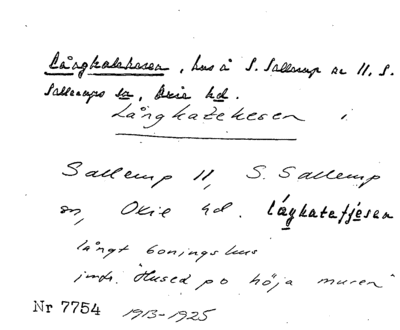 Långkatekesen, hus å S. Sallerup nr 11, S.
Sallerups sn, Oxie hd.
Långkatekesen i
Sallerup 11, S. Sallerup
sn, Oxie hd. láŋkatəfjèsən
långt boningshus
jmfr. "Hused po höja muren"
Nr 7754 1913-1925